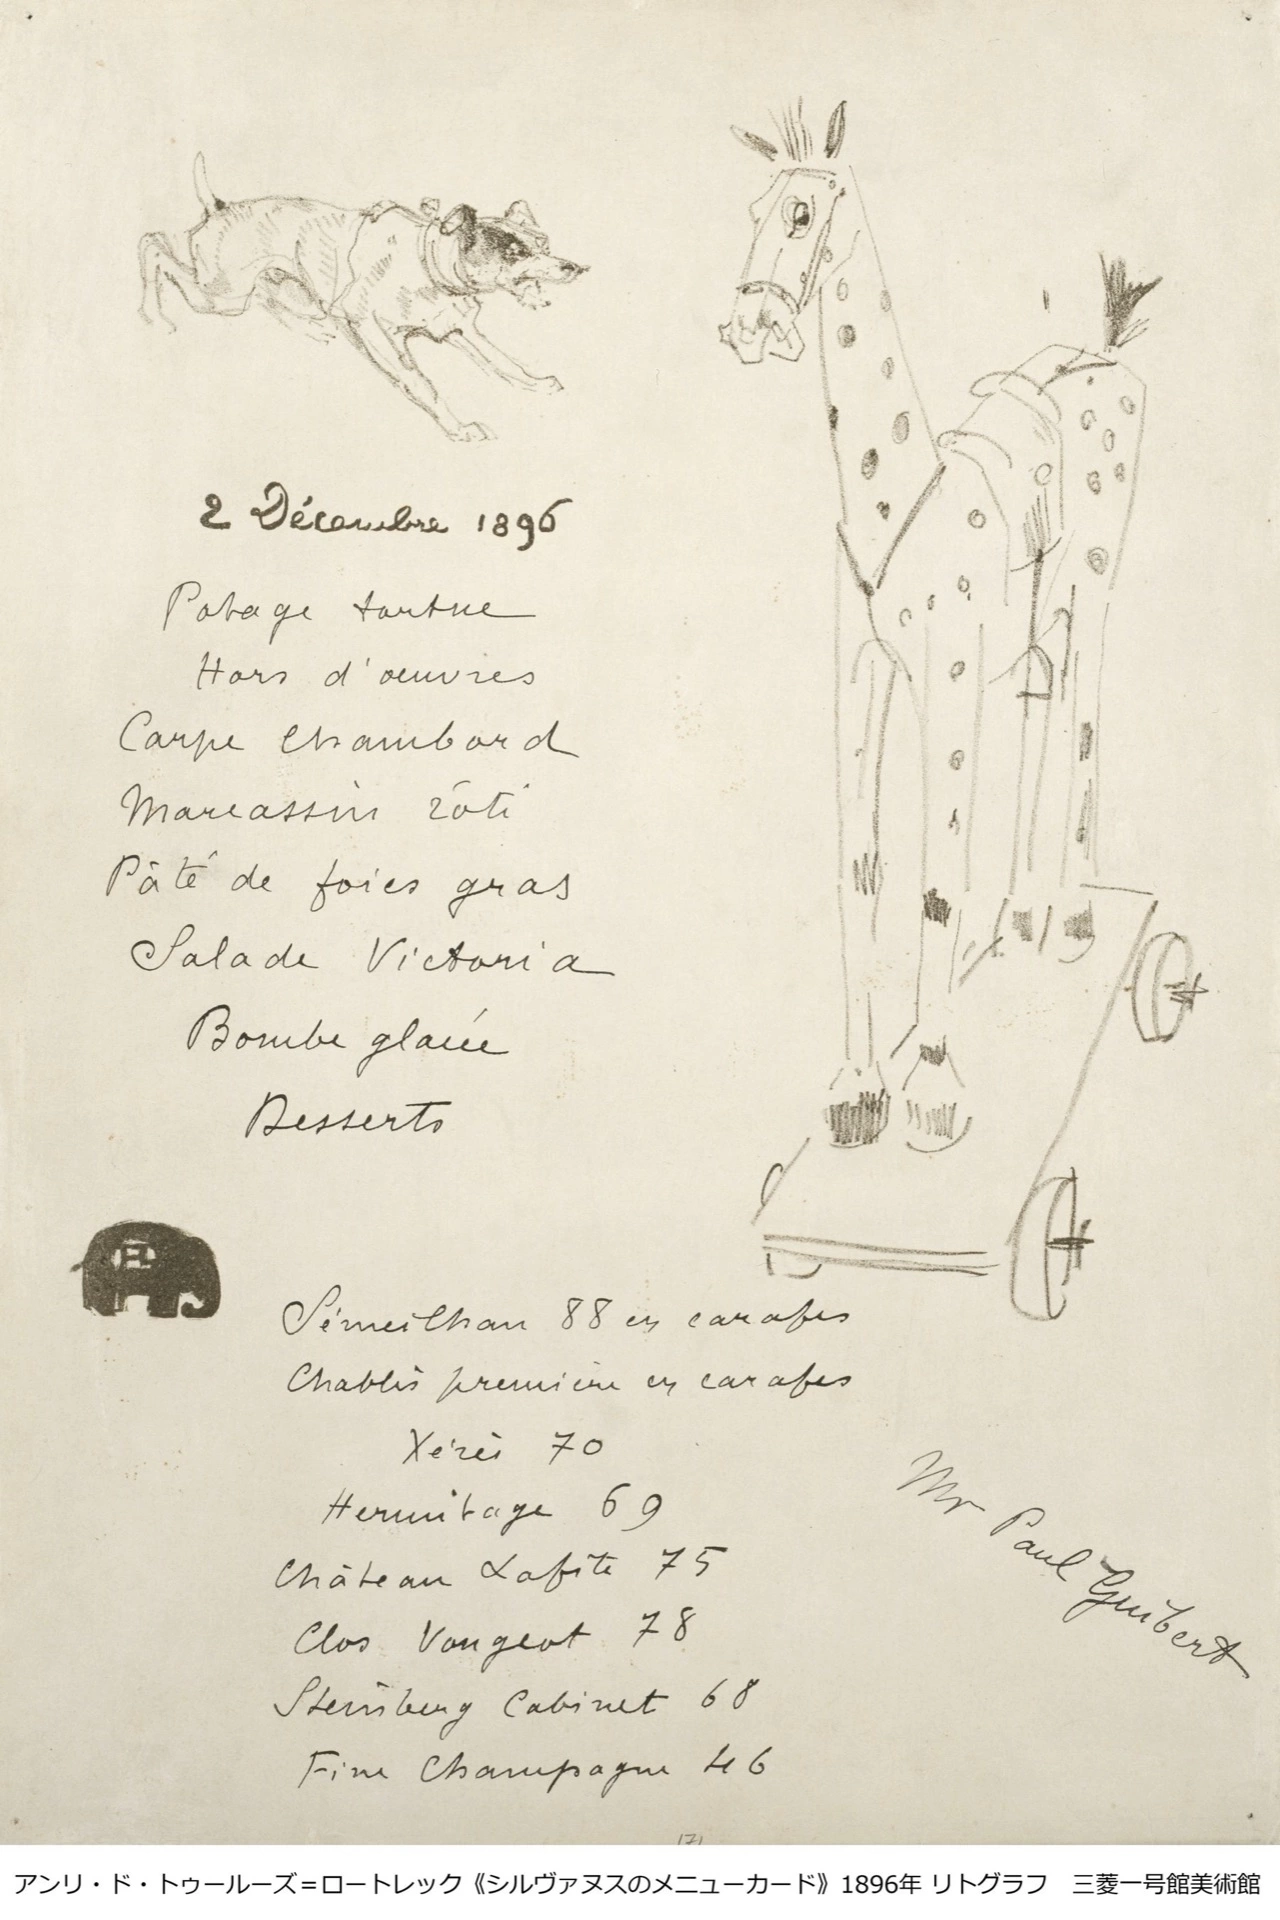 2 Décembre 1896
Potage tortue
Hors d'oeuvres
Carpe Chambord
Marcassin rôti
Pâté de foies gras
Salade Victoria
Bombe glacée
Desserts
Sémeilhan 88 en carafes
Chablis première en carafes
Xérès 70
Hermitage 69
Château Lafite 75
Clos Vougeot 78
Steinberg Cabinet 68
Fine Champagne 46
Mr Paul Guibert
アンリ・ド・トゥールーズ＝ロートレック《シルヴァヌスのメニューカード》1896年 リトグラフ　三菱一号館美術館